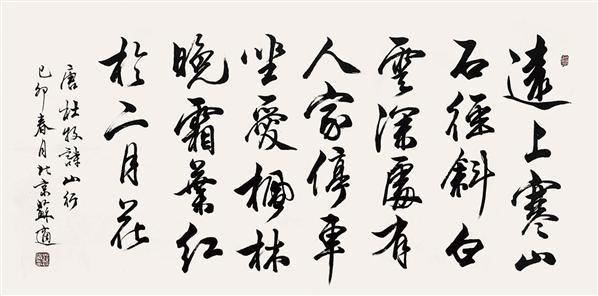 遠上寒山
石徑斜白
雲深處有
人家停車
坐愛楓林
晚霜葉紅
於二月花
唐杜牧詩山行
己卯春月北京蘇適